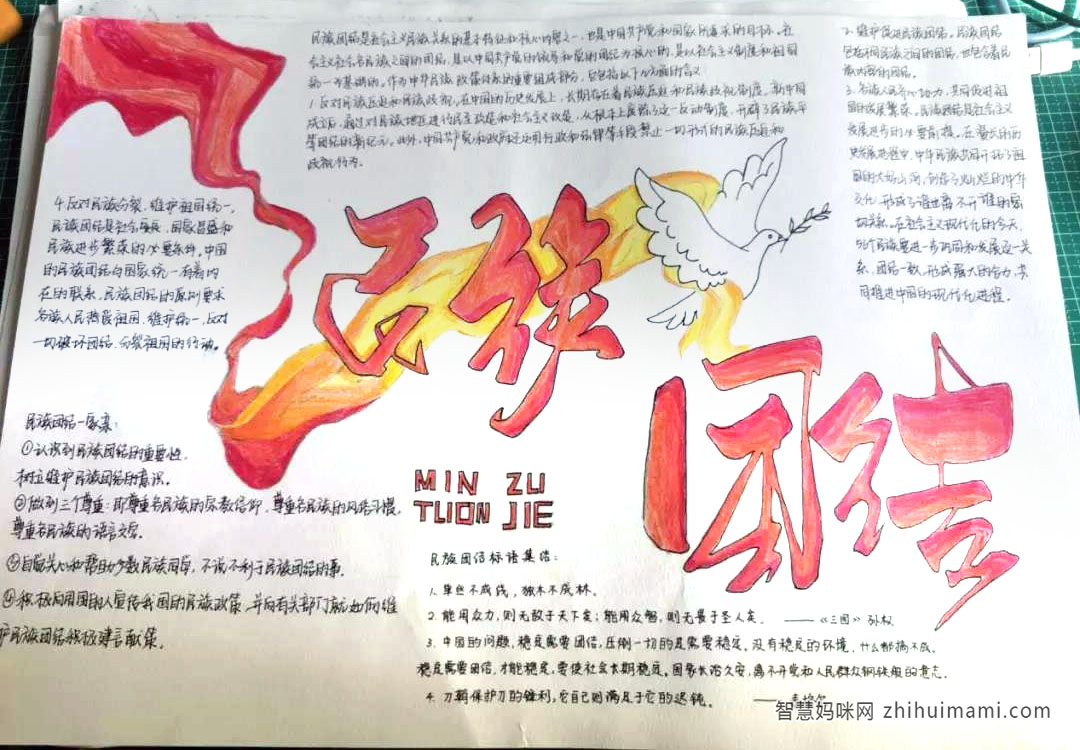 民族团结是社会主义民族关系的基本特征和核心内容之一,也是中国共产党和国家所追求的目标。在
社会主义社会各民族之间的团结,是以中国共产党的领导和党的团结为核心的,是以社会主义制度和祖国
统一为基础的,作为中华民族政策体系的重要组成部分,它包括以下几方面的含义
1.反对民族压迫和民族歧视。在中国的历史发展上,长期存在着民族压迫和民族歧视制度,新中国
成立后,通过对民族地区进行民主改革和社会主义改造,从根本上废除了这一反动制度,开辟了民族平
等团结的新纪元。此外,中国共产党和政府还运用行政和法律等手段禁止一切形式的民族压迫和
歧视行为。
2.维护促进民族团结,民族团结
包括不同民族之间的团结,也包含着民
族内部的团结。
3.各族人民齐心协力,共同促进祖
国的发展繁荣,民族团结是社会主义
发展进步的必要前提。在漫长的历
史发展进程中,中华民族共同开拓了祖
国的大好山河,创造了灿烂的中华
文化,形成了谁也离不开谁的密
切关系。在社会主义现代化的今天,
56个民族要进一步巩固和发展这一关
系,团结一致,形成强大的合力,共
同推进中国的现代化进程。
4.反对民族分裂,维护祖国统一。
民族团结是社会安定、国家昌盛和
民族进步繁荣的必要条件,中国
的民族团结与国家统一有着内
在的联系,民族团结的原则要求
各族人民热爱祖国,维护统一,反对
一切破坏团结、分裂祖国的行动。
民族
团结
MIN ZU
TUON JIE
民族团结一家亲:
①认识到民族团结的重要性,
树立维护民族团结的意识。
②做到三个尊重:即尊重各民族的宗教信仰、尊重各民族的风俗习惯,
尊重各民族的语言文字。
③自觉关心和帮助少数民族同学,不说不利于民族团结的事。
④积极向周围的人宣传我国的民族政策,并向有关部门就如何维
护民族团结积极建言献策。
民族团结标语集结:
1.单丝不成线,独木不成林。
2.能用众力,则无敌于天下矣;能用众智,则无畏于圣人矣。 ——《三国》孙权
3.中国的问题,稳定需要团结,压倒一切的是需要稳定。没有稳定的环境,什么都搞不成,
稳定需要团结,才能稳定,要使社会长期稳定。国家长治久安,离不开党和人民群众钢铁般的意志。
4.刀鞘保护刀的锋利,它自己则满足于它的迟钝。 ——泰格尔
智慧妈咪网 zhihuimami.com